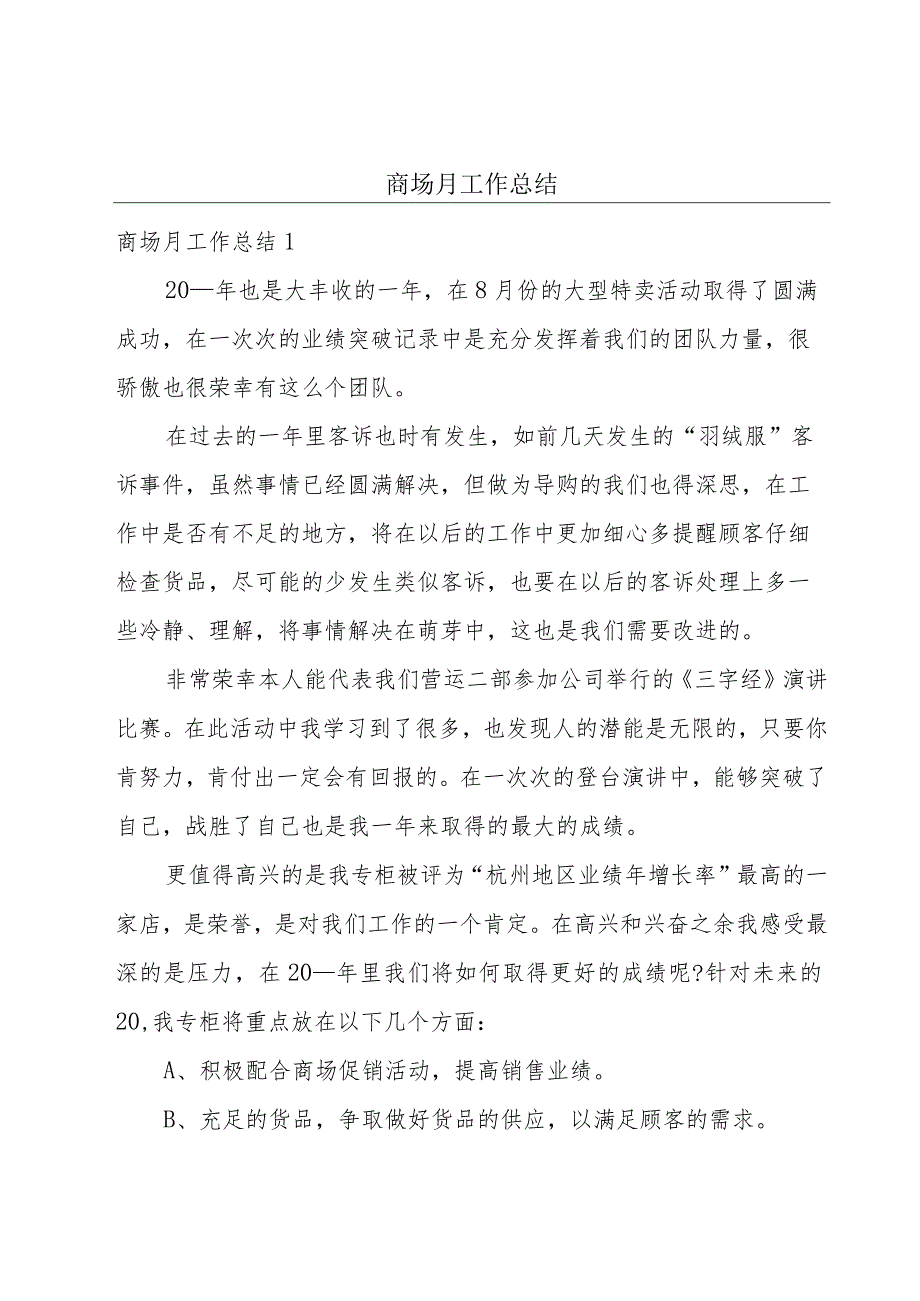 商场月工作总结
商场月工作总结 1
20一年也是大丰收的一年，在 8 月份的大型特卖活动取得了圆满
成功，在一次次的业绩突破记录中是充分发挥着我们的团队力量，很
骄傲也很荣幸有这么个团队。
在过去的一年里客诉也时有发生，如前几天发生的“羽绒服”客
诉事件，虽然事情已经圆满解决，但做为导购的我们也得深思，在工
作中是否有不足的地方，将在以后的工作中更加细心多提醒顾客仔细
检查货品，尽可能的少发生类似客诉，也要在以后的客诉处理上多一
些冷静、理解，将事情解决在萌芽中，这也是我们需要改进的。
非常荣幸本人能代表我们营运二部参加公司举行的《三字经》演讲
比赛。在此活动中我学习到了很多，也发现人的潜能是无限的，只要你
肯努力，肯付出一定会有回报的。在一次次的登台演讲中，能够突破了
自己，战胜了自己也是我一年来取得的最大的成绩。
更值得高兴的是我专柜被评为“杭州地区业绩年增长率”最高的一
家店，是荣誉，是对我们工作的一个肯定。在高兴和兴奋之余我感受最
深的是压力，在 20一年里我们将如何取得更好的成绩呢?针对未来的
20,我专柜将重点放在以下几个方面：
A、积极配合商场促销活动，提高销售业绩。
B、充足的货品，争取做好货品的供应，以满足顾客的需求。